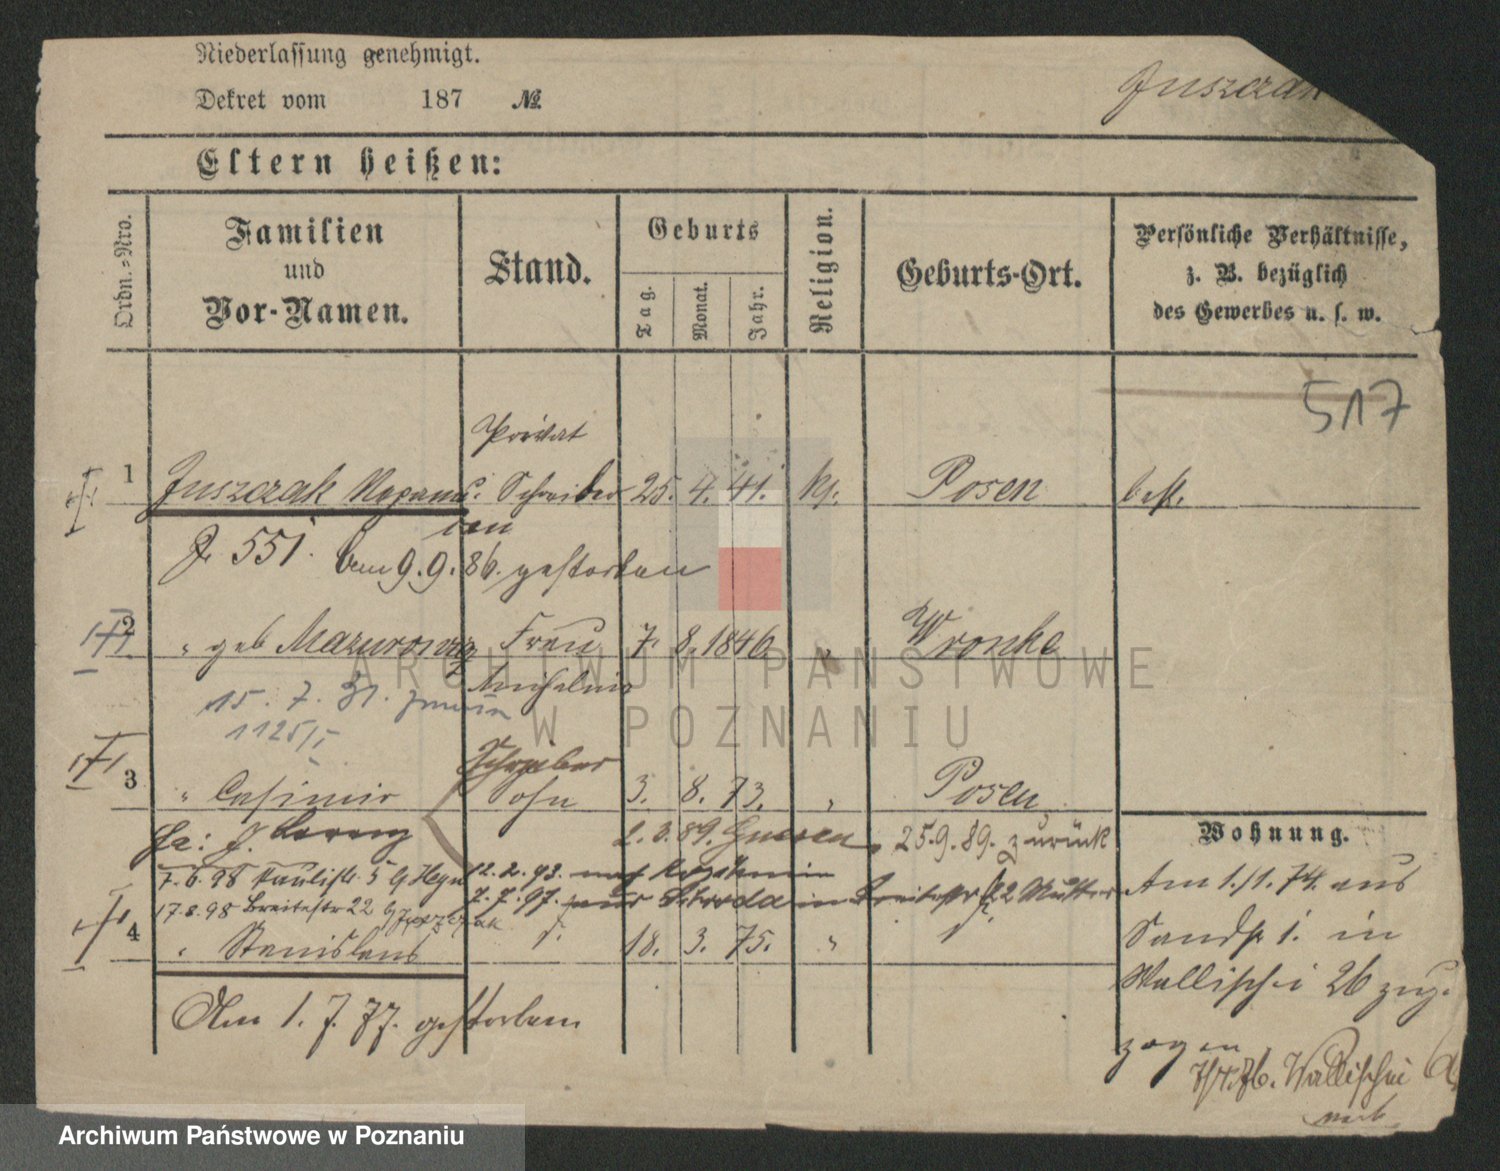 Niederlassung genehmigt.
Dekret vom 187 №
Juszczak
Eltern heißen:
Ordn.-Nro.
Familien
und
Vor-Namen.
Stand.
Geburts
Tag.
Monat.
Jahr.
Religion.
Geburts-Ort.
Persönliche Verhältnisse,
z. B. bezüglich
des Gewerbes u. s. w.
517
Privat
1 Juszczak Schreiber 25. 4. 41. kth. Posen
J. 551. 9.9.86. gestorben
2 " geb Mazurowicz Frau 7. 8. 1846 " Wronke
15. 7. 81.
1125/I
Schreiber
3 " Casimir Sohn 3. 8. 73. " Posen
89. Gnesen 25.9.89. zurück
7.6.98 5
12.2.93. nach
17.8.98 Breitestr 22
7.7.97. Schroda in Breitestr 22 Mutter
4 " Stanislaus 18. 3. 75. "
Am 1.7.77. gestorben
Wohnung.
Am 1./1. 74. aus
Sandstr 1. in
Wallischei 26 zuge-
zogen
Wallischei
ARCHIWUM PAŃSTWOWE
W POZNANIU
Archiwum Państwowe w Poznaniu